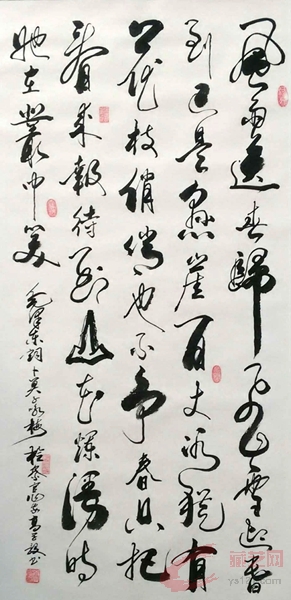 風雨送春歸飛雪迎春
到已是懸崖百丈冰猶有
花枝俏俏也不争春只把
春来報待到山花爛漫時
她在叢中笑
毛澤東詞卜算子咏梅